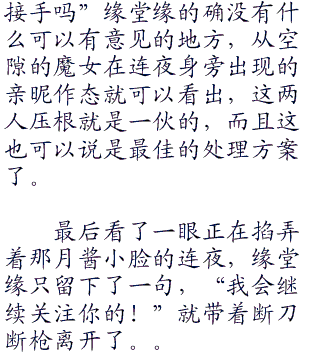 接手吗”缘堂缘的确没有什
么可以有意见的地方，从空
隙的魔女在连夜身旁出现的
亲昵作态就可以看出，这两
人压根就是一伙的，而且这
也可以说是最佳的处理方案
了。
最后看了一眼正在掐弄
着那月酱小脸的连夜，缘堂
缘只留下了一句，“我会继
续关注你的！”就带着断刀
断枪离开了。。